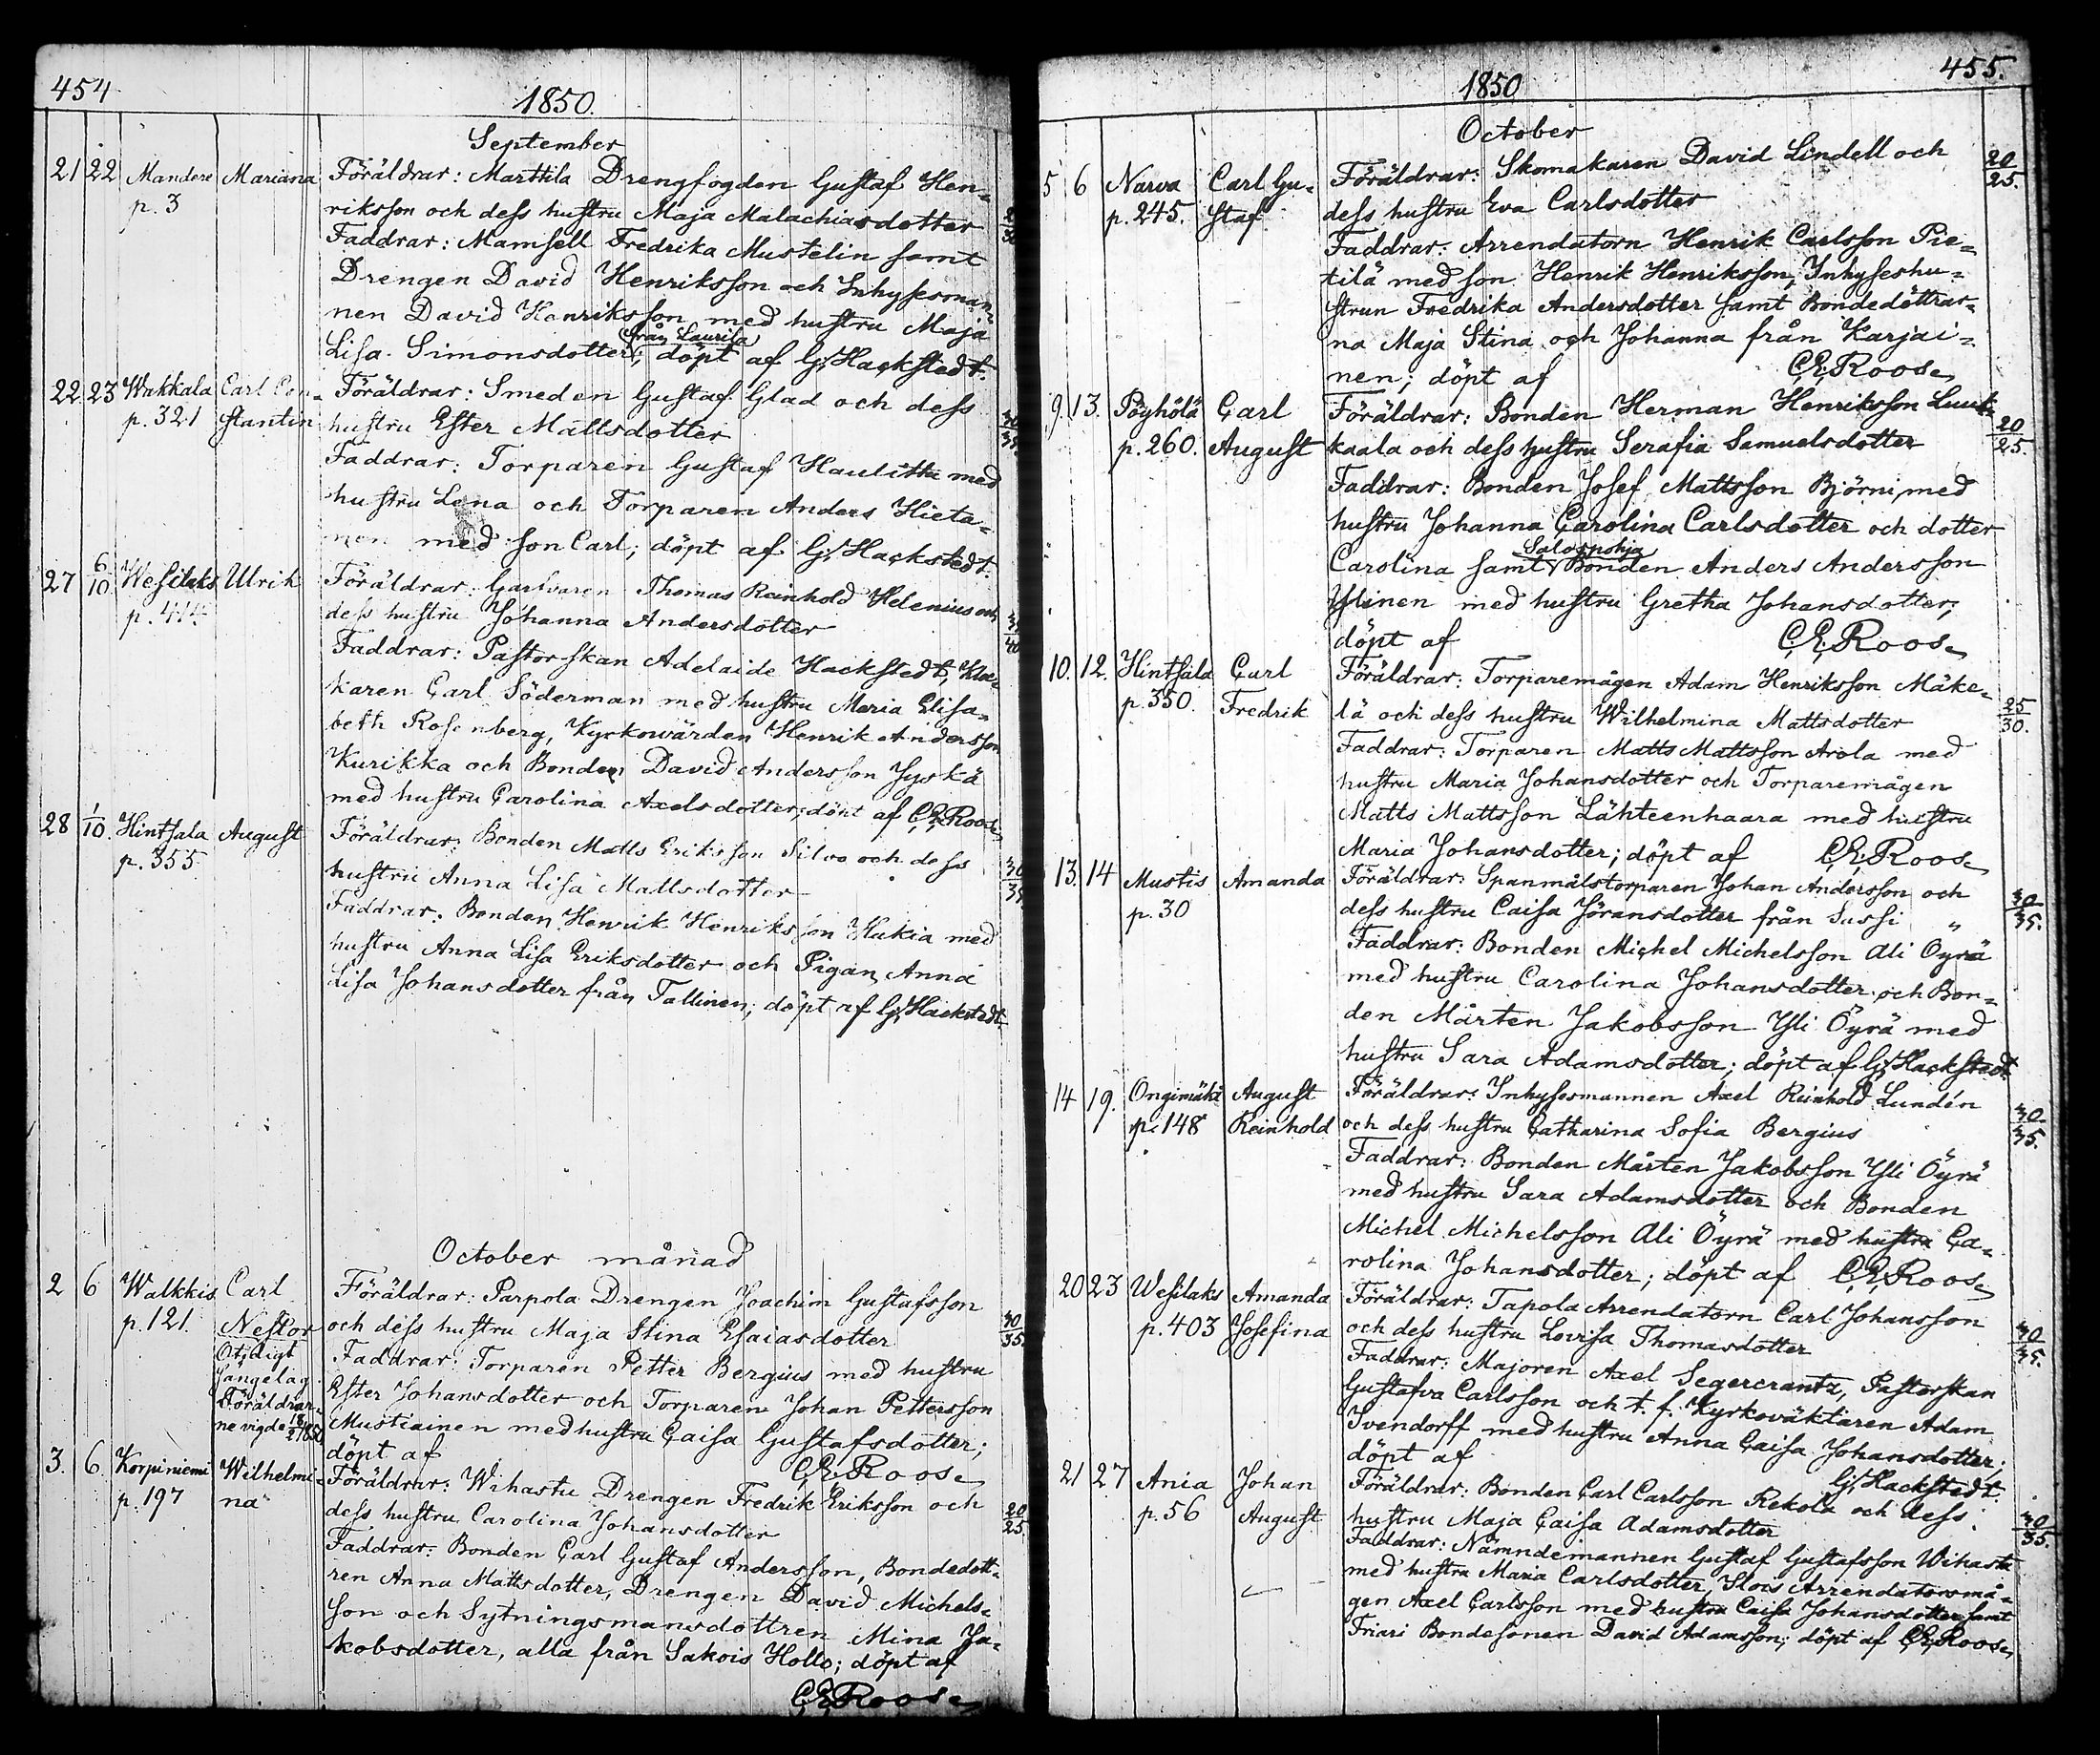 454
1850.
September
21 22 Mandere Mariana Föräldrar: Marttila Drengfogden Gustaf Hen-
p. 3 riksson och dess hustru Maja Malachiasdotter
Faddrar: Mamsell Fredrika Mustelin samt
Drengen David Henriksson och Inhysesman-
nen David Henriksson med hustru Maja
från Laurila
Lisa Simonsdotter; döpt af G. Hackstedt.
22 23 Wakkala Carl Con- Föräldrar: Smeden Gustaf Glad och dess
p. 321 stantin hustru Ester Mattsdotter
Faddrar: Torparen Gustaf Haulitta med
hustru Lena och Torparen Anders Hieta-
nen med son Carl; döpt af G. Hackstedt.
27 6/10 Wesilaks Ulrik Föräldrar: Garfvaren Thomas Reinhold Helenius och
dess hustru Johanna Andersdotter
Faddrar: Pastorskan Adelaide Hackstedt, Kloc-
karen Carl Söderman med hustru Maria Elisa-
beth Rosenberg, Kyrkowärden Henrik Andersson
Kurikka och Bonden David Andersson Jyskä
med hustru Carolina Axelsdotter; döpt af C.E. Roos
28 1/10. Hintsala August Föräldrar: Bonden Matts Eriksson Silvo och dess 30/35
p. 355. hustru Anna Lisa Mattsdotter
Faddrar: Bonden Henrik Henriksson Hukia med
hustru Anna Lisa Eriksdotter och Pigan Anna
Lisa Johansdotter från Tallinen; döpt af G. Hackstedt
October månad
2 6 Walkkis Carl Föräldrar: Parpola Drengen Joachim Gustafsson 30/35.
p. 121. Nestor och dess hustru Maja Stina Esaiasdotter
Otidigt Faddrar: Torparen Petter Bergius med hustru
sängelag Ester Johansdotter och Torparen Johan Pettersson
Föräldrar-
ne vigde Mustiainen med hustru Caisa Gustafsdotter;
döpt af C.E. Roos
3. 6. Korpiniemi Wilhelmi- Föräldrar: Wihastu Drengen Fredrik Eriksson och 20/25.
p. 197 na dess hustru Carolina Johansdotter
Faddrar: Bonden Carl Gustaf Andersson, Bondedott-
ren Anna Mattsdotter, Drengen David Michels-
son och Sytningsmansdottren Mina Ja-
kobsdotter, alla från Sakois Hollo; döpt af
C.E. Roos
455.
1850
October
5 6 Narva Carl Gu- Föräldrar: Skomakaren David Lindell och 20/25.
p. 245. staf dess hustru Eva Carlsdotter
Faddrar: Arrendatorn Henrik Carlsson Pie-
tilä med son Henrik Henriksson, Inhyseshu-
strun Fredrika Andersdotter samt Bondedöttrar-
na Maja Stina och Johanna från Karjai-
nen; döpt af C.E. Roos
9. 13. Pöyhölä Carl Föräldrar: Bonden Herman Henriksson Luuk- 20/25.
p. 260. August kaala och dess hustru Serafia Samuelsdotter
Faddrar: Bonden Josef Mattsson Björni med
hustru Johanna Carolina Carlsdotter och dotter
Salospohja
Carolina samt Bonden Anders Andersson
Ylinen med hustru Gretha Johansdotter;
döpt af C.E. Roos
10. 12. Hintsala Carl Föräldrar: Torparemågen Adam Henriksson Mäke- 25/30.
p. 350. Fredrik lä och dess hustru Wilhelmina Mattsdotter
Faddrar: Torparen Matts Mattsson Arola med
hustru Maria Johansdotter och Torparemågen
Matts Mattsson Lähteenhaara med hustru
Maria Johansdotter; döpt af C.E. Roos
13. 14 Mustis Amanda Föräldrar: Spanmålstorparen Johan Andersson och 30/35.
p. 30 dess hustru Caisa Göransdotter från Sussi
Faddrar: Bonden Michel Michelsson Ali Öyrä
med hustru Carolina Johansdotter och Bon-
den Mårten Jakobsson Yli Öyrä med
hustru Sara Adamsdotter; döpt af G. Hackstedt
14 19. Ongimäki August Föräldrar: Inhysesmannen Axel Reinhold Lundén 30/35.
p. 148 Reinhold och dess hustru Catharina Sofia Bergius
Faddrar: Bonden Mårten Jakobsson Yli Öyrä
med hustru Sara Adamsdotter och Bonden
Michel Michelsson Ali Öyrä med hustru Ca-
rolina Johansdotter; döpt af C.E. Roos
20 23 Wesilaks Amanda Föräldrar: Tapola Arrendatorn Carl Johansson 30/35.
p. 403 Josefina och dess hustru Lovisa Thomasdotter
Faddrar: Majoren Axel Segercrantz, Pastorskan
Gustafva Carlsson och t. f. Kyrkoväktaren Adam
Svendorff med hustru Anna Caisa Johansdotter;
döpt af G. Hackstedt.
21 27 Ania Johan Föräldrar: Bonden Carl Carlsson Rekola och dess 30/35.
p. 56 August hustru Maja Caisa Adamsdotter
Faddrar: Nämndemannen Gustaf Gustafsson Wihastu
med hustru Maria Carlsdotter, Slois Arrendatorsmå-
gen Axel Carlsson med hustru Caisa Johansdotter samt
Friari Bondesonen David Adamsson; döpt af C.E. Roos